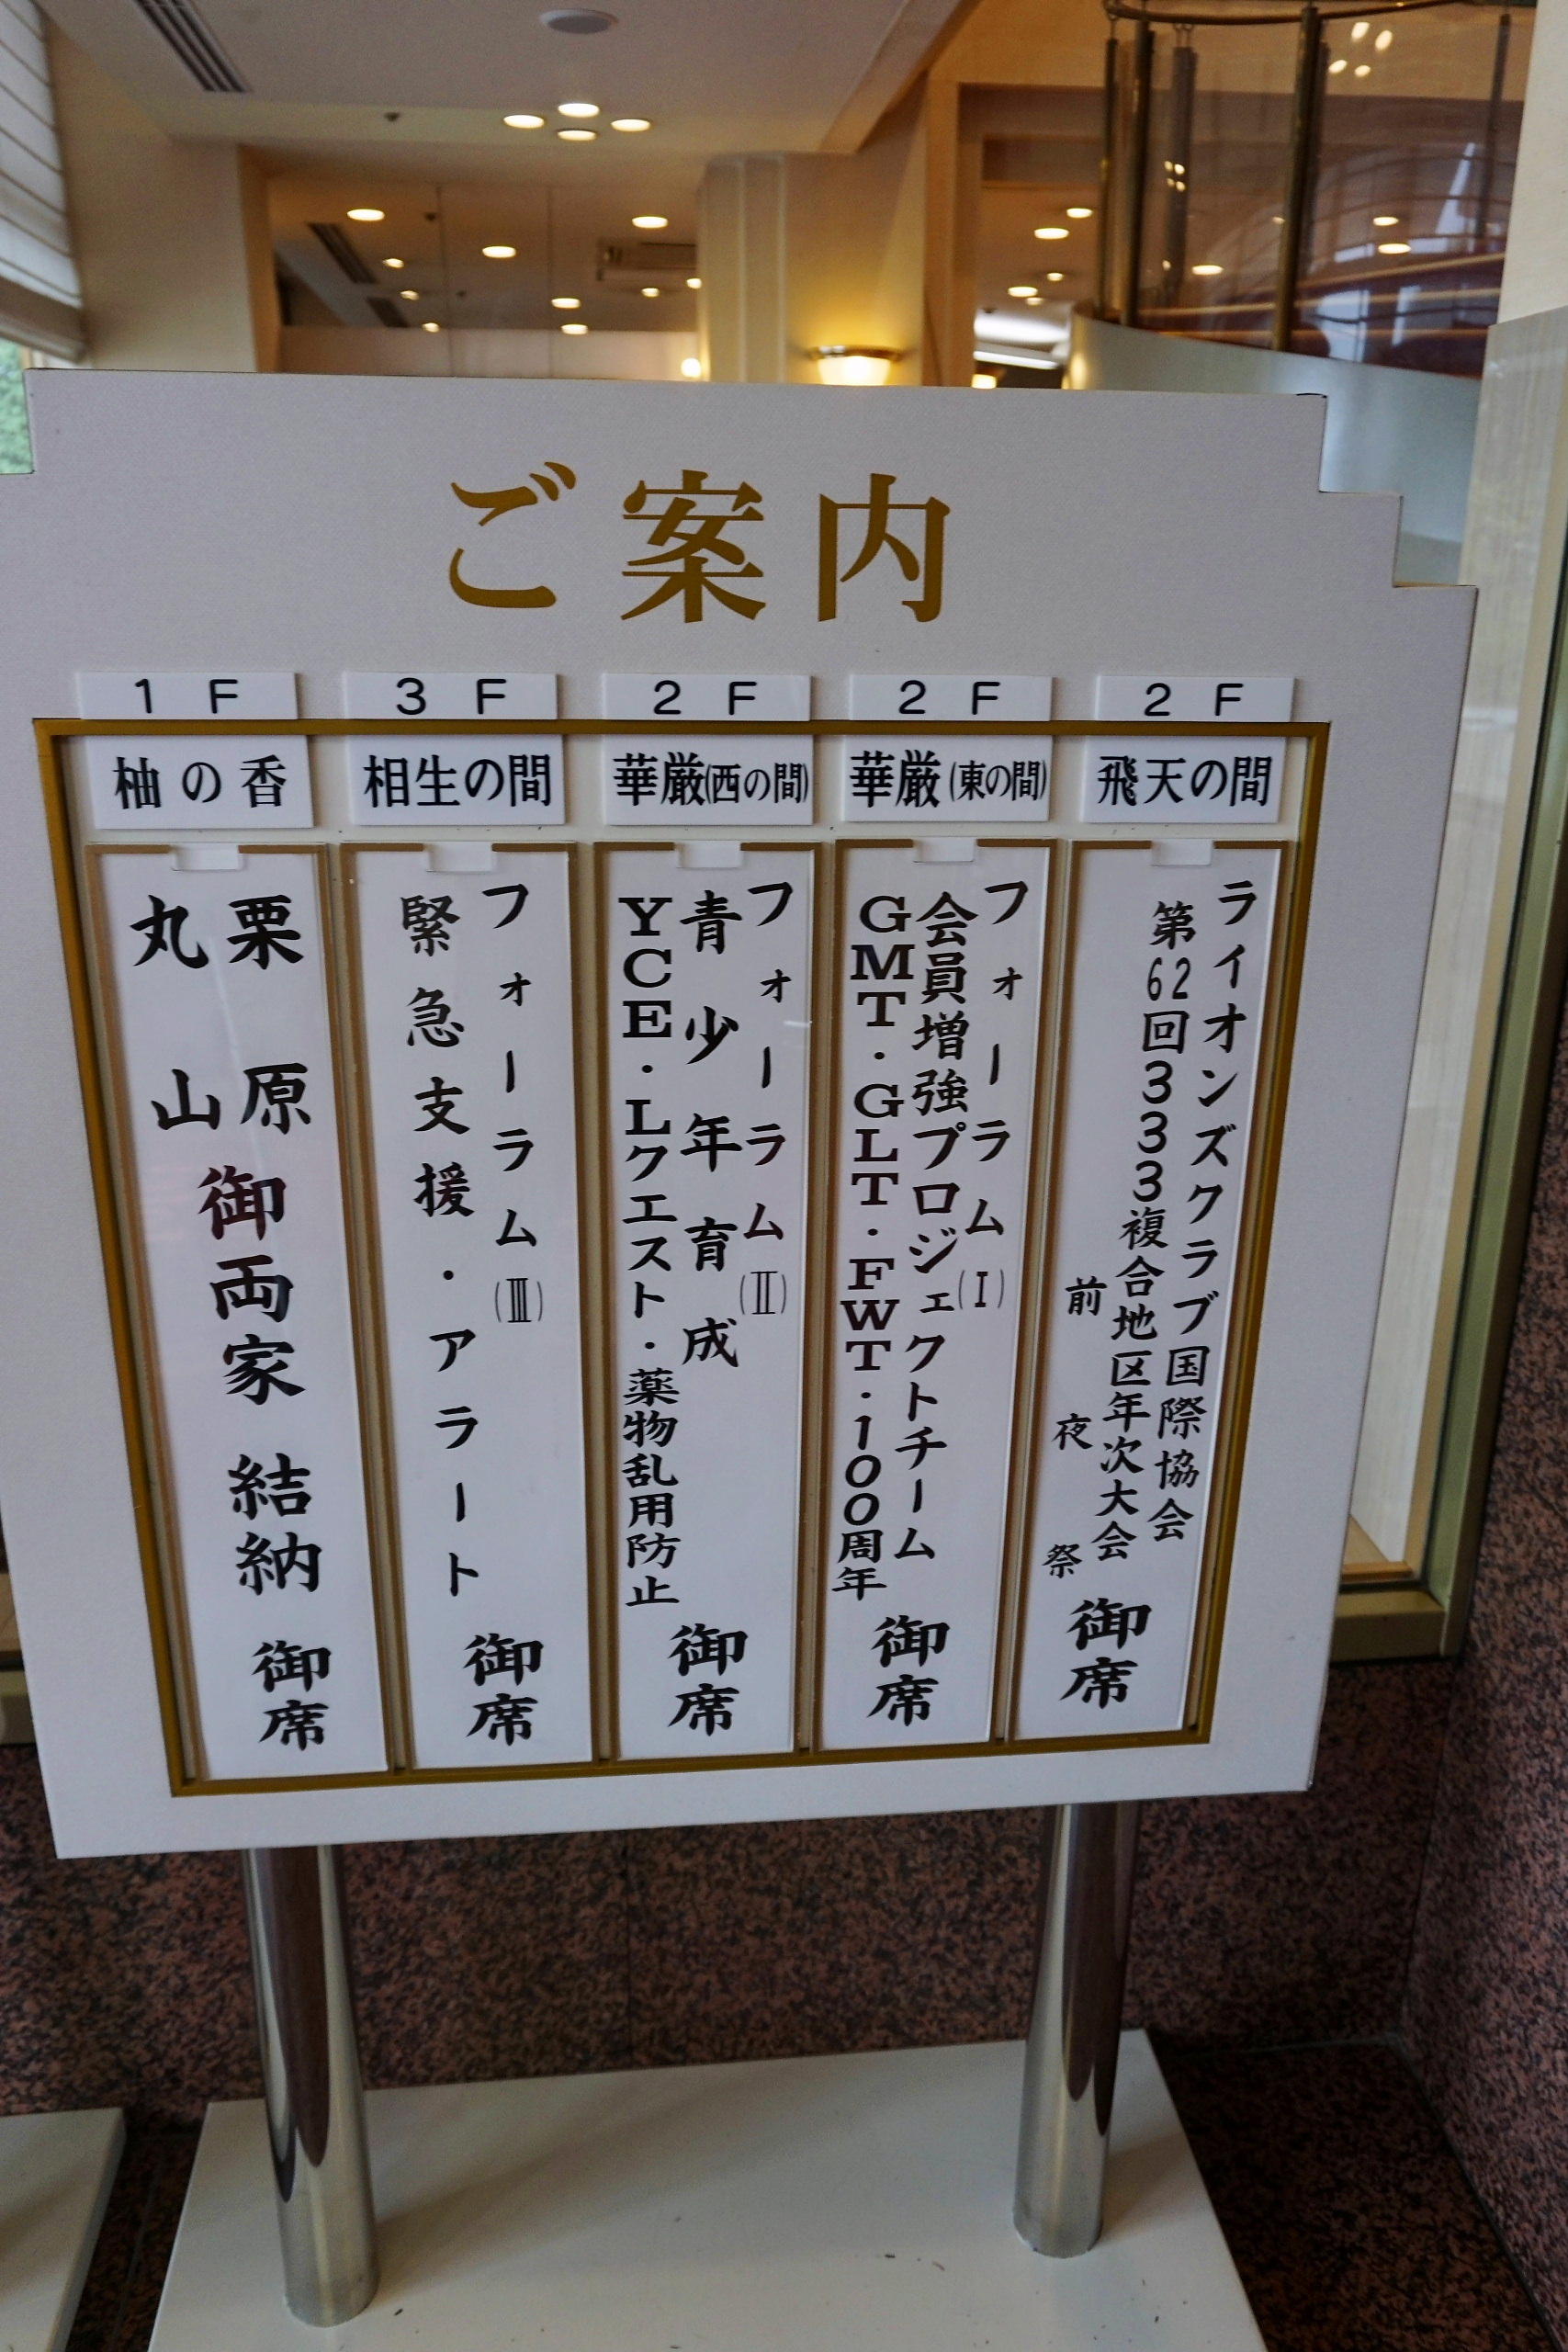 ご案内
2F
飛天の間
ライオンズクラブ国際協会
第62回333複合地区年次大会
前夜祭
御席
2F
華厳(東の間)
フォーラム(Ⅰ)
会員増強プロジェクトチーム
GMT・GLT・FWT・100周年
御席
2F
華厳(西の間)
フォーラム(Ⅱ)
青少年育成
YCE・Lクエスト・薬物乱用防止
御席
3F
相生の間
フォーラム(Ⅲ)
緊急支援・アラート
御席
1F
柚の香
栗原
丸山
御両家 結納
御席